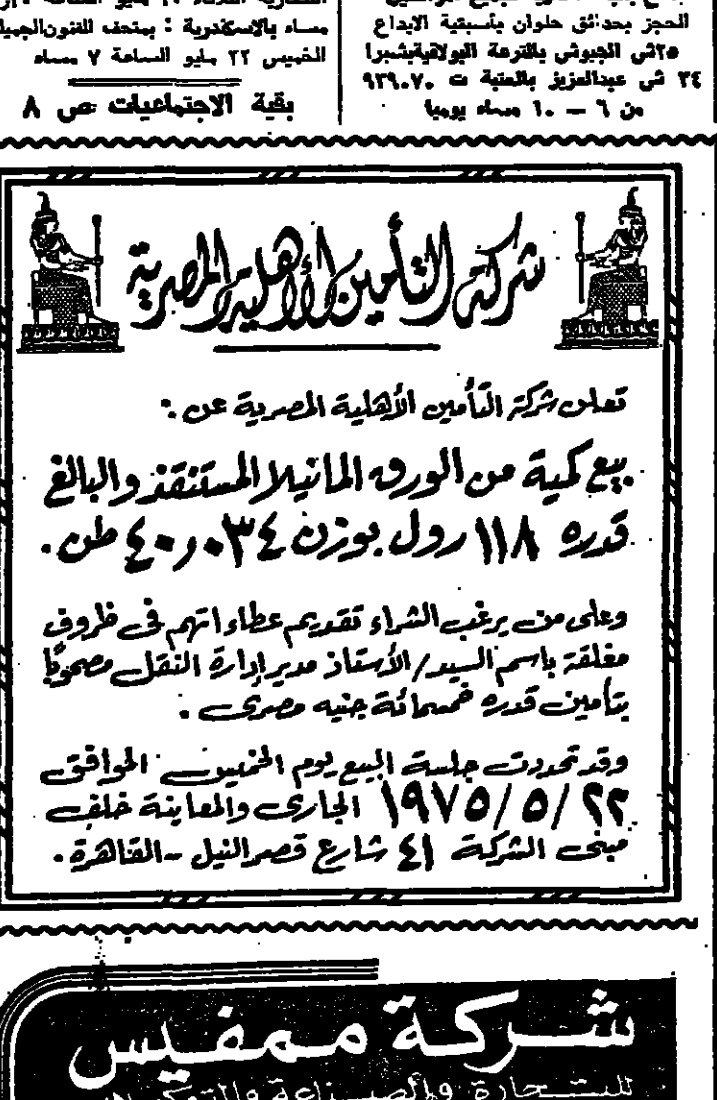 الحجز بحدائق حلوان بأسبقية الايداع
٢٥ش الجيوشى بالترعة البولاقية بشبرا
٣٤ ش عبدالعزيز بالعتبة ت ٩٣٩٠٧٠
من ٦ — ١٠ مساء يوميا
مساء بالاسكندرية : بمتحف الفنون الجميلة
الخميس ٢٢ مايو الساعة ٧ مساء
بقية الاجتماعيات ص ٨
شركة التأمين الأهلية المصرية
تعلن شركة التأمين الأهلية المصرية عن :
بيع كمية من الورق المانيلا المستنقذ والبالغ
قدره ١١٨ رول بوزن ٤٠٫٠٣٤ طن .
وعلى من يرغب الشراء تقديم عطاءاتهم فى ظروف
مغلقة باسم السيد / الأستاذ مدير إدارة النقل مصحوبًا
بتأمين قدره خمسمائة جنيه مصرى .
وقد تحددت جلسة البيع يوم الخميس الموافق
٢٢ / ٥ / ١٩٧٥ الجارى والمعاينة خلف
مبنى الشركة ٤١ شارع قصر النيل - القاهرة .
شركة ممفيس
للتجارة والصناعة والتوكيلات